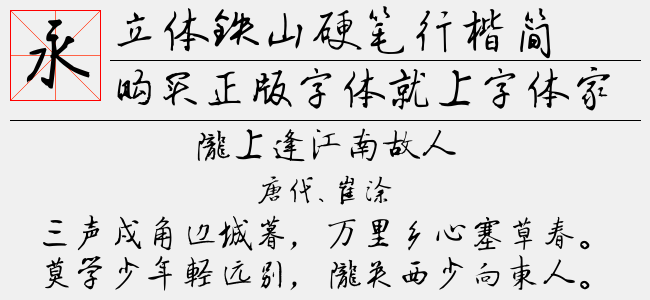 永
立体铁山硬笔行楷简
购买正版字体就上字体家
陇上逢江南故人
唐代、崔涂
三声戍角边城暮，万里乡心塞草春。
莫学少年轻远别，陇关西少向东人。